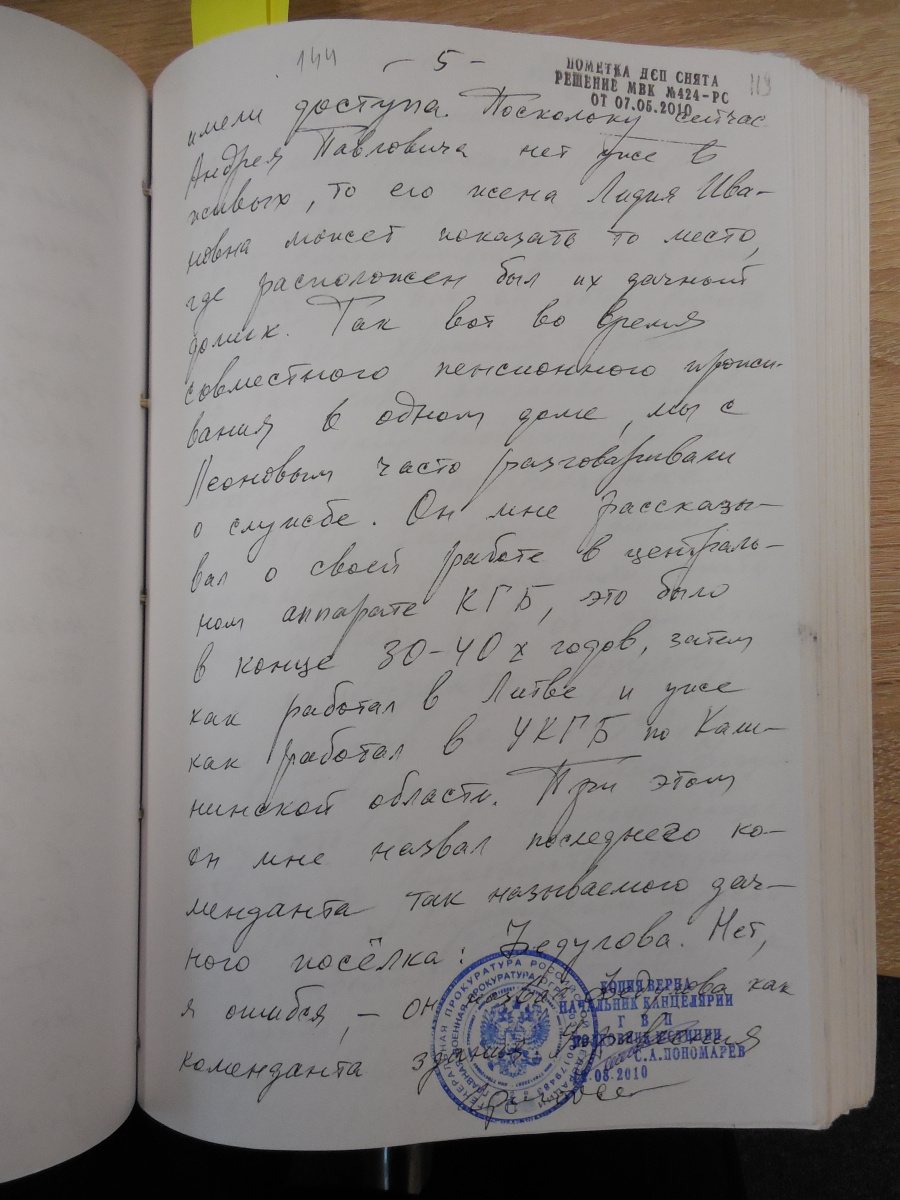 144
- 5 -
ПОМЕТКА ДСП СНЯТА
РЕШЕНИЕ МВК №424-РС
ОТ 07.05.2010
119
имели доступа. Поскольку сейчас
Андрея Павловича нет уже в
живых, то его жена Лидия Ива-
новна может показать то место,
где расположен был их дачный
домик. Так вот во время
совместного пенсионного прожи-
вания в одном доме, мы с
Леоновым часто разговаривали
о службе. Он мне рассказы-
вал о своей работе в централь-
ном аппарате КГБ, это было
в конце 30-40х годов, затем
как работал в Литве и уже
как работал в УКГБ по Кали-
нинской области. При этом
он мне назвал последнего ко-
менданта так называемого дач-
ного посёлка: Бедулова. Нет,
я ошибся, – он назвал Бедулова как
коменданта здания Управления
КОПИЯ ВЕРНА
НАЧАЛЬНИК КАНЦЕЛЯРИИ
ГВП
ПОЛКОВНИК ЮСТИЦИИ
С.А.ПОНОМАРЕВ
.08.2010
ГЕНЕРАЛЬНАЯ ПРОКУРАТУРА РОССИЙСКОЙ ФЕДЕРАЦИИ
ГЛАВНАЯ ВОЕННАЯ ПРОКУРАТУРА